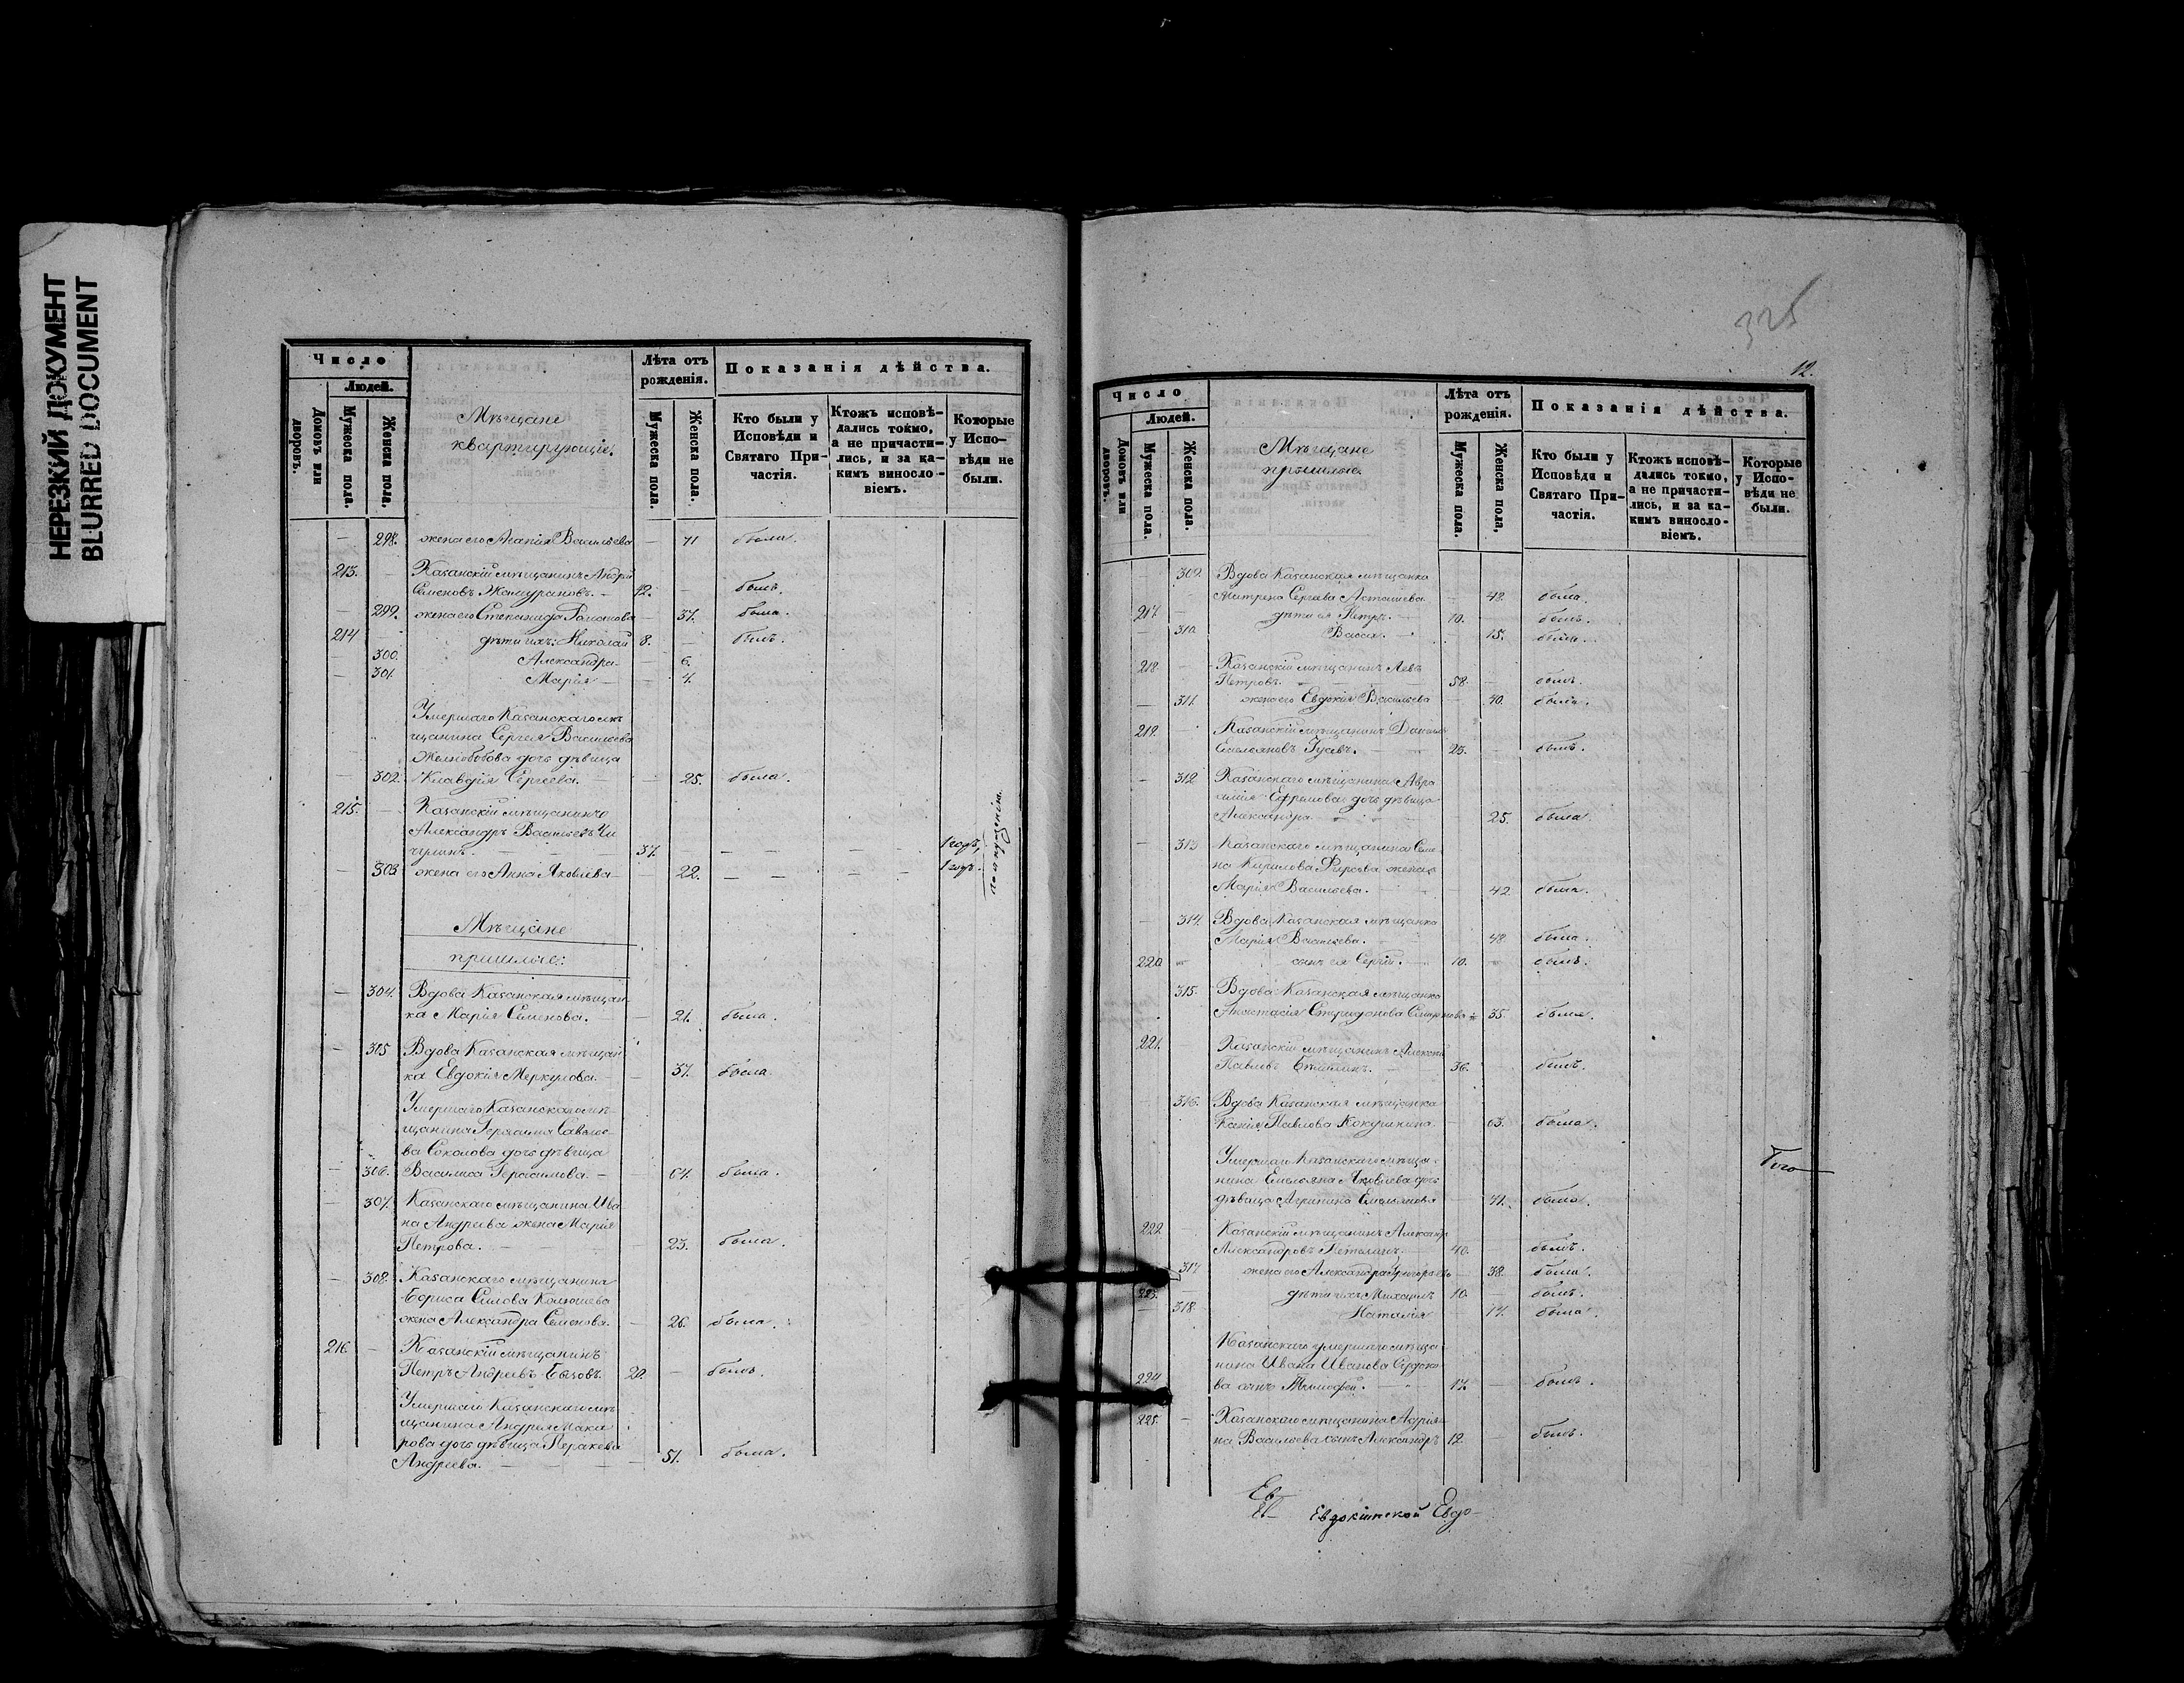 НЕРЕЗКИЙ ДОКУМЕНТ
BLURRED DOCUMENT
Число
Людей.
Домовъ или дворовъ.
Мужеска пола.
Женска пола.
Мѣщане
квартирующіе.
Лѣта отъ рожденія.
Мужеска пола.
Женска пола.
Показанія дѣйства.
Кто были у Исповѣди и Святаго Причастія.
Ктожъ исповѣдались токмо, а не причастились, и за какимъ винословіемъ.
Которые у Исповѣди не были.
— 298. жена его Агапія Васильева — 71 была.
213. — Казанскій мѣщанинъ Андрей
Семеновъ — 42. — былъ.
— 299. жена его Степанида — 37. была.
214 — дѣти ихъ: Николай 8. — былъ.
300. Александра — 6.
— 301. Марія — 4.
Умершаго Казанскаго мѣ-
щанина Сергея Васильева
дочь дѣвица
— 302. Клавдія Сергеева. — 25. была.
215. — Казанскій мѣщанинъ
Александръ Васильевъ
37. — — — 1 годъ,
— 303 жена его Анна Яковлева — 22. — — — 1 годъ
по опущенію.
Мѣщане
пришлые:
— 304. Вдова Казанская мѣщан-
ка Марія Семенова. — 21. была.
— 305 Вдова Казанская мѣщан-
ка Евдокія Меркулова. — 37. была.
Умершаго Казанскаго мѣ-
щанина Герасима Савелье-
ва Соколова дочь дѣвица
— 306. Василиса Герасимова. — 64. была.
— 307. Казанскаго мѣщанина Ива-
на Андреева жена Марія
Петрова. — 23. была.
— 308. Казанскаго мѣщанина
Бориса Силова
жена Александра Семенова. — 26. была.
216. — Казанскій мѣщанинъ
Петръ Андреевъ 20. — былъ.
Умершаго Казанскаго мѣ-
щанина Андрея Мака-
рова дочь дѣвица
Андреева. — 51. была.
325
12.
Число
Людей.
Домовъ или дворовъ.
Мужеска пола.
Женска пола.
Мѣщане
пришлые.
Лѣта отъ рожденія.
Мужеска пола.
Женска пола.
Показанія дѣйства.
Кто были у Исповѣди и Святаго Причастія.
Ктожъ исповѣдались токмо, а не причастились, и за какимъ винословіемъ.
Которые у Исповѣди не были.
— 309. Вдова Казанская мѣщанка
Матрена Сергеева — 48. была.
217. — дѣти ея Петръ. — 10. — былъ.
— 310. Васса. — 15. была.
218. — Казанскій мѣщанинъ Левъ
Петровъ. 58. — былъ.
— 311. жена его Евдокія Васильева — 40. была.
219. — Казанскій мѣщанинъ
Емельяновъ Гусевъ. — 25. — былъ.
— 312 Казанскаго мѣщанина Авра-
амія Ефремова дочь дѣвица
Александра — 25. была.
— 313 Казанскаго мѣщанина Семе-
на Кирилова жена
Марія Васильева. — 42. была.
— 314. Вдова Казанская мѣщанка
Марія Васильева. 48 была.
220 — сынъ ея Сергій. — 10. — былъ.
315. Вдова Казанская мѣщанка
Анастасія Спиридонова — 35. была.
221. — Казанскій мѣщанинъ Алексей
Павловъ — 36. былъ.
316. Вдова Казанская мѣщанка
Павлова — 63. была.
Умершаго Казанскаго мѣща-
нина Емельяна Яковлева дочь
дѣвица Агрипина Емельянова — 41. была.
222 Казанскій мѣщанинъ Александръ
Александровъ — 40. — былъ.
317 жена его Александра Григорьева — 38. была.
223. — дѣти ихъ Михаилъ 10. — былъ.
— 318 Наталія — 14. была.
Казанскаго умершаго мѣща-
нина Ивана Иванова
224 сынъ Тимофей. — 17. — былъ.
225. — Казанскаго мѣщанина Адрія-
на Васильева сынъ Александръ 12. — былъ.
Того
Ев-
Ев- Евдокіинской Евдо-